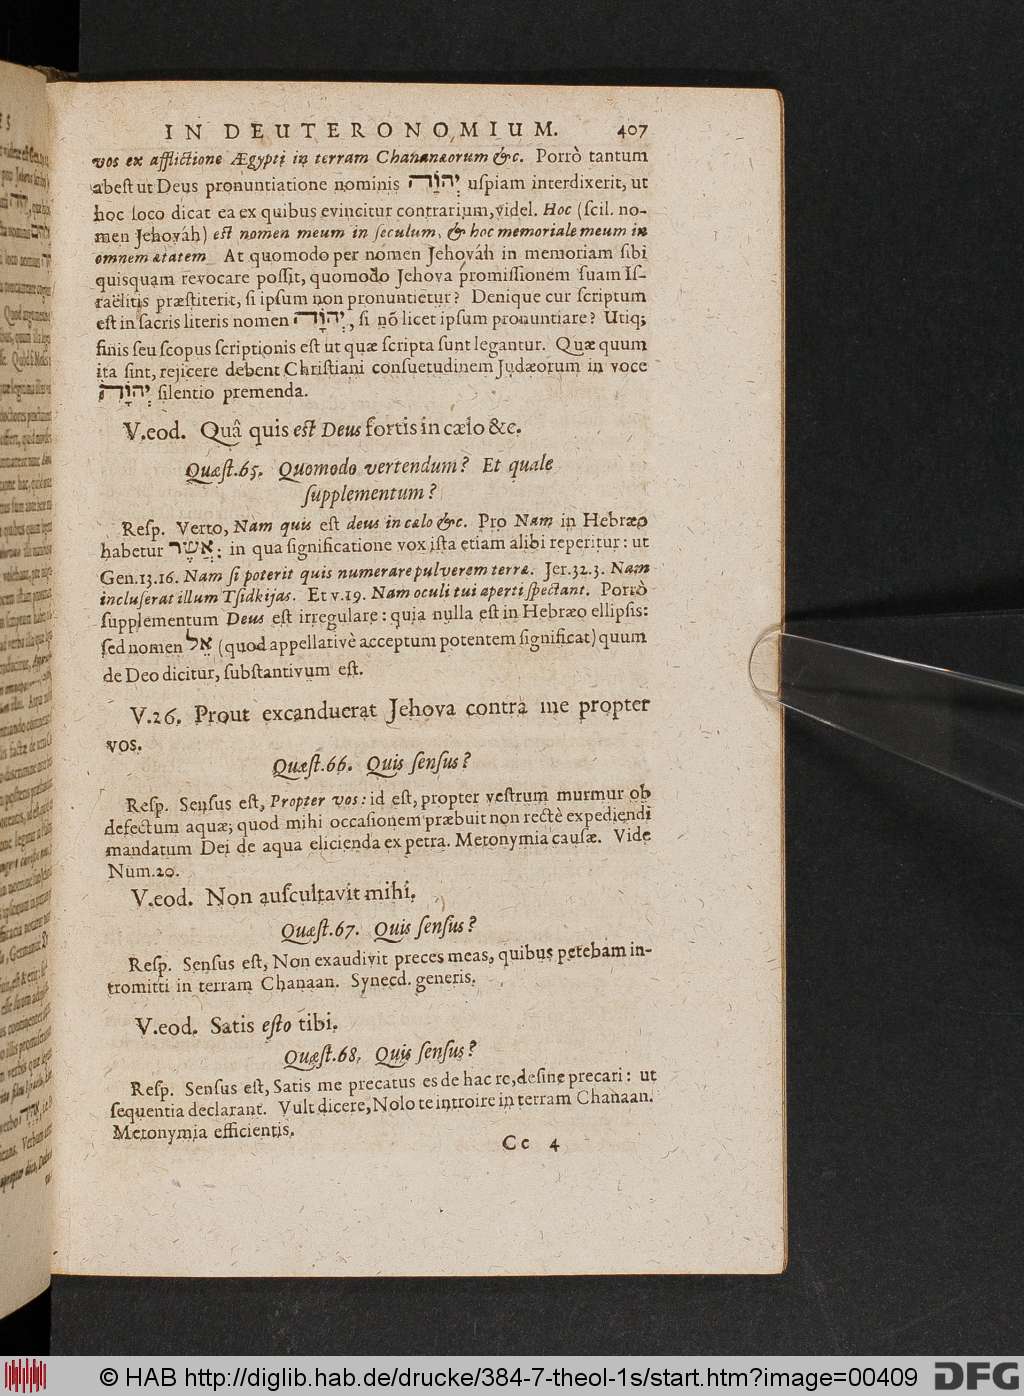 IN DEUTERONOMIUM. 407
vos ex afflictione Ægypti in terram Chananæorum &c. Porrò tantum
abest ut Deus pronuntiatione nominis יְהוָֹה uspiam interdixerit, ut
hoc loco dicat ea ex quibus evincitur contrarium, videl. Hoc (scil. no-
men Jehováh) est nomen meum in seculum, & hoc memoriale meum in
omnem ætatem. At quomodo per nomen Jehováh in memoriam sibi
quisquam revocare possit, quomodo Jehova promissionem suam Is-
raëlitis præstiterit, si ipsum non pronuntietur? Denique cur scriptum
est in sacris literis nomen יְהוָֹה, si nō licet ipsum pronuntiare? Utiq;
finis seu scopus scriptionis est ut quæ scripta sunt legantur. Quæ quum
ita sint, rejicere debent Christiani consuetudinem Judæorum in voce
יְהוָֹה silentio premenda.
V.eod. Quâ quis est Deus fortis in cælo &c.
Quæst.65. Quomodo vertendum? Et quale
supplementum?
Resp. Verto, Nam quis est deus in cælo &c. Pro Nam in Hebræo
habetur אֲשֶׁר: in qua significatione vox ista etiam alibi reperitur: ut
Gen.13.16. Nam si poterit quis numerare pulverem terræ. Jer.32.3. Nam
incluserat illum Tsidkijas. Et v.19. Nam oculi tui aperti spectant. Porrò
supplementum Deus est irregulare: quia nulla est in Hebræo ellipsis:
sed nomen אֵל (quod appellativè acceptum potentem significat) quum
de Deo dicitur, substantivum est.
V.26. Prout excanduerat Jehova contra me propter
vos.
Quæst.66. Quis sensus?
Resp. Sensus est, Propter vos: id est, propter vestrum murmur ob
defectum aquæ; quod mihi occasionem præbuit non rectè expediendi
mandatum Dei de aqua elicienda ex petra. Metonymia causæ. Vide
Num.20.
V.eod. Non auscultavit mihi.
Quæst.67. Quis sensus?
Resp. Sensus est, Non exaudivit preces meas, quibus petebam in-
tromitti in terram Chanaan. Synecd. generis.
V.eod. Satis esto tibi.
Quæst.68. Quis sensus?
Resp. Sensus est, Satis me precatus es de hac re, desine precari: ut
sequentia declarant. Vult dicere, Nolo te introire in terram Chanaan.
Metonymia efficientis.
Cc 4
© HAB http://diglib.hab.de/drucke/384-7-theol-1s/start.htm?image=00409
DFG